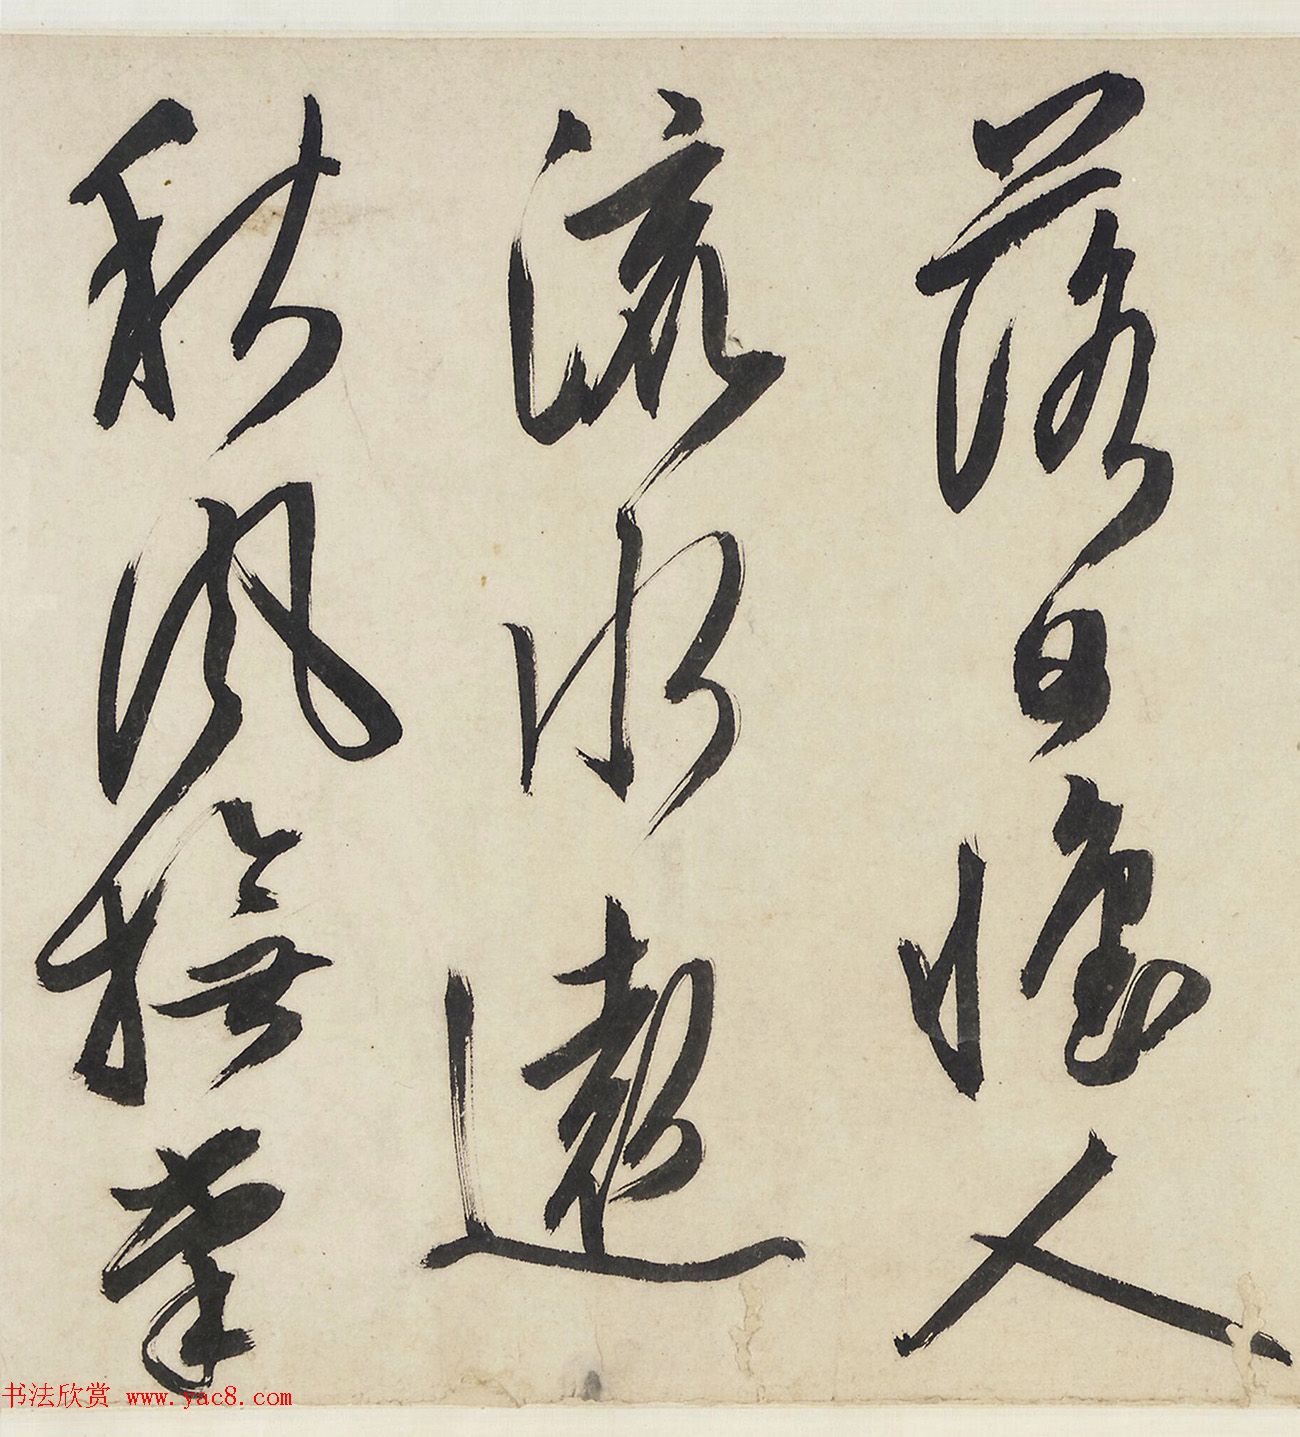 落日憶人
流水遠
秋風撫
书法欣赏 www.yac8.com